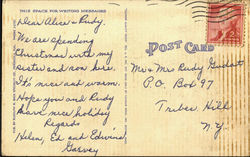 THIS SPACE FOR WRITING MESSAGES
Dear Alice & Rudy.
We are spending
Christmas with my
sister and son here.
It's nice and warm.
Hope you and Rudy
have nice holiday
Regards
Helen, Ed and Edwina
Garvey
POST CARD
Mr & Mrs Rudy
P.O. Box 97
Tribes Hill
N.Y.